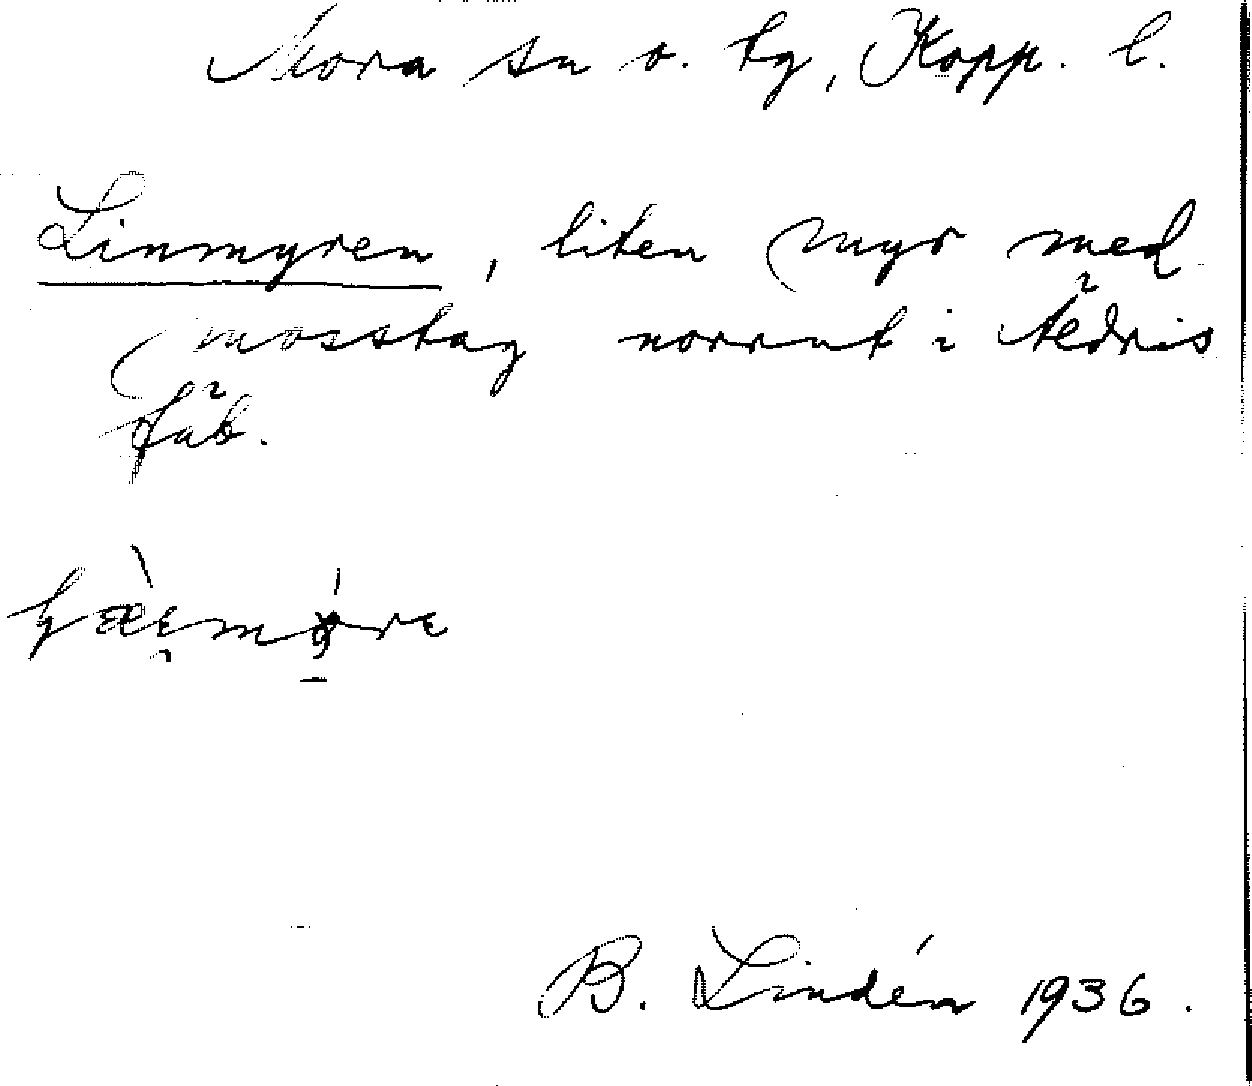 Mora sn o. tg, Kopp. l.
Linmyren, liten myr med
mosstag norrut i
fäb.
B. Lindén 1936.